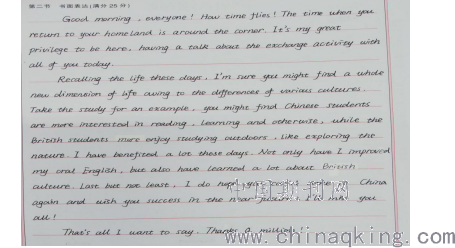 第二节 书面表达(满分25分)
Good morning, everyone! How time flies! The time when you
return to your homeland is around the corner. It's my great
privilege to be here, having a talk about the exchange activity with
all of you today.
Recalling the life these days, I'm sure you might find a whole
new dimension of life owing to the differences of various cultures.
Take the study for an example, you might find Chinese students
are more interested in reading, learning and otherwise, while the
British students more enjoy studying outdoors, like exploring the
nature. I have benefited a lot these days. Not only have I improved
my oral English, but also have learned a lot about British
culture. Last but not least, I do hope you China
again and wish you success in the near future. you
all!
That's all I want to say. Thanks a million.
中国期刊网
www.chinaqking.com